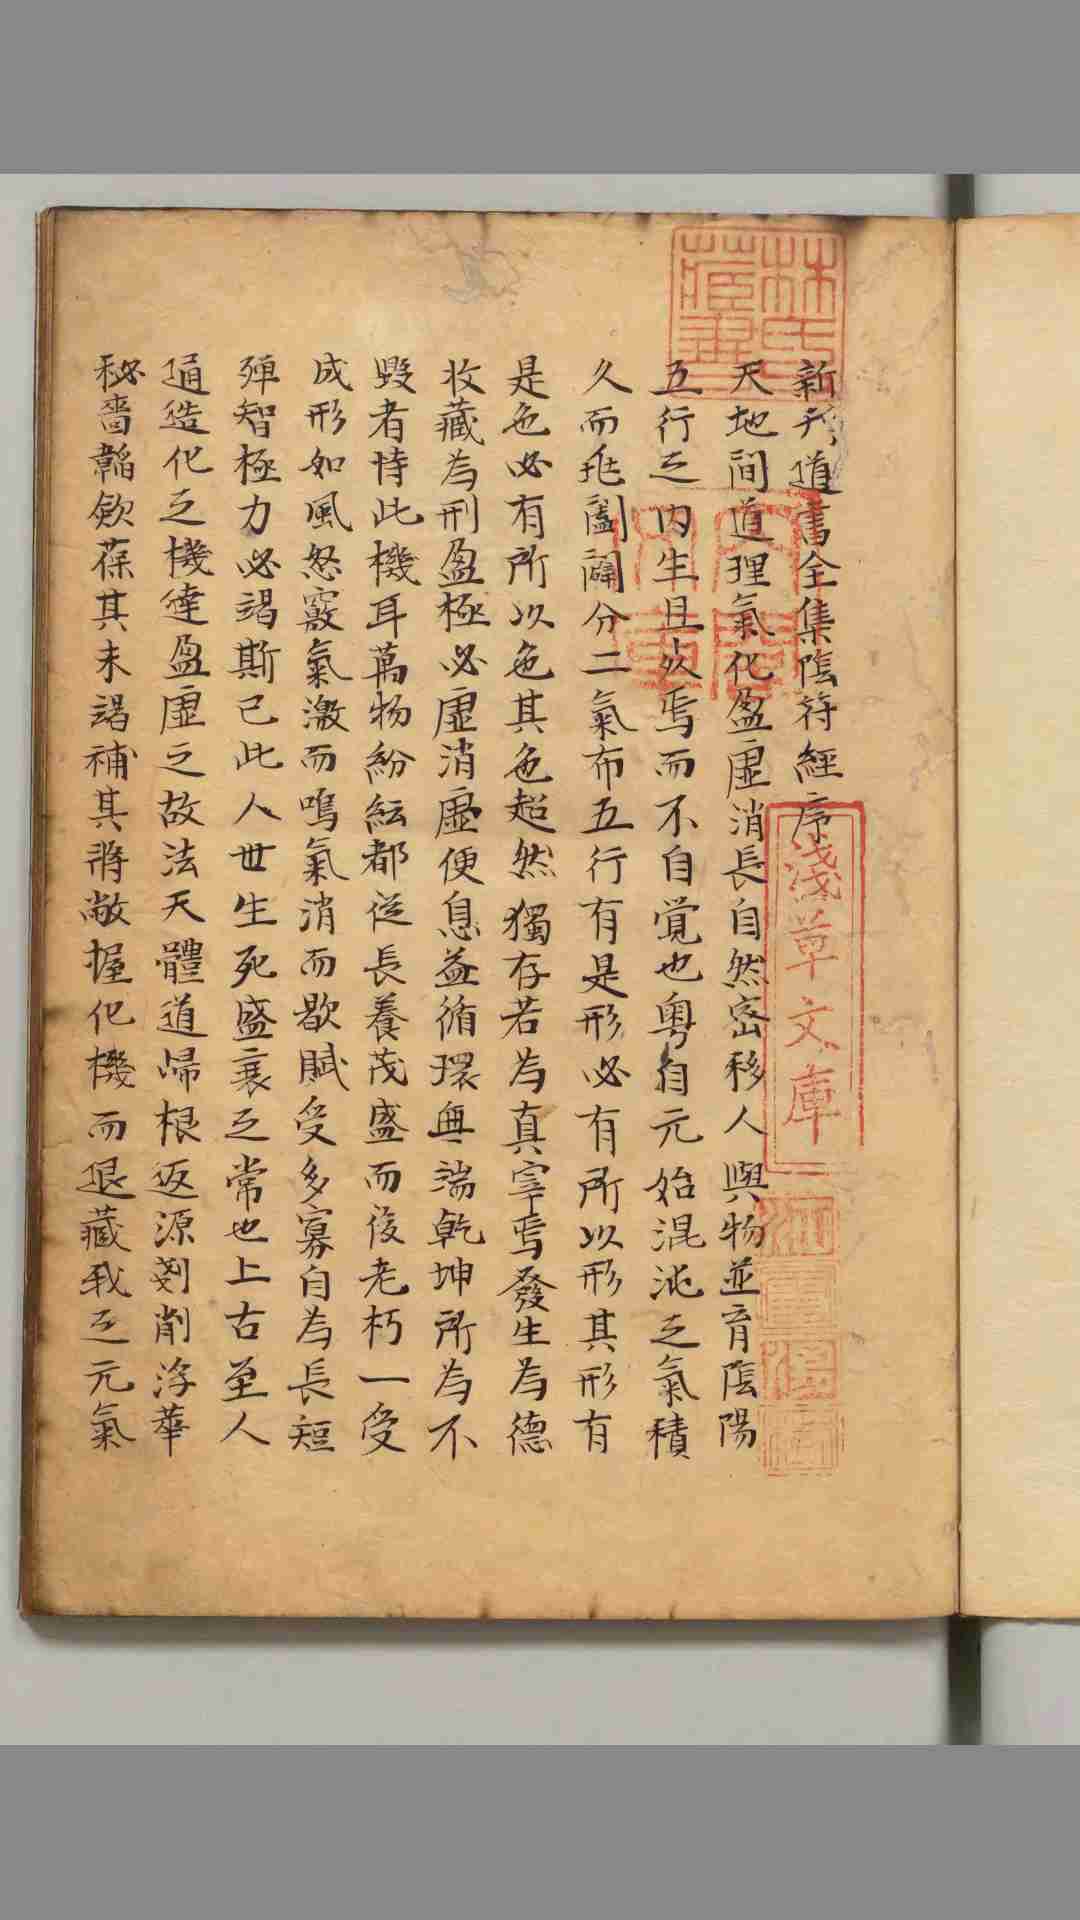 新刋道書全集陰符經序
天地間道理氣化盈虛消長自然密移人與物並育陰陽
五行之内生且死焉而不自覚也粤自元始混沌之氣積
久而兆闔闢分二氣布五行有是形必有所以形其形有
是色必有所以色其色超然獨存若為真宰焉發生為德
收藏為刑盈極必虛消虛便息益循環無端乾坤所為不
毀者恃此機耳萬物紛紜都從長養茂盛而後老朽一受
成形如風怒竅氣激而鳴氣消而歇賦受多寡自為長短
殫智極力必竭斯已此人世生死盛衰之常也上古至人
通造化之機達盈虛之故法天體道歸根返源剗削浮華
秘嗇韜歛葆其未竭補其將敝握化機而退藏我之元氣
林氏藏書
淺草文庫